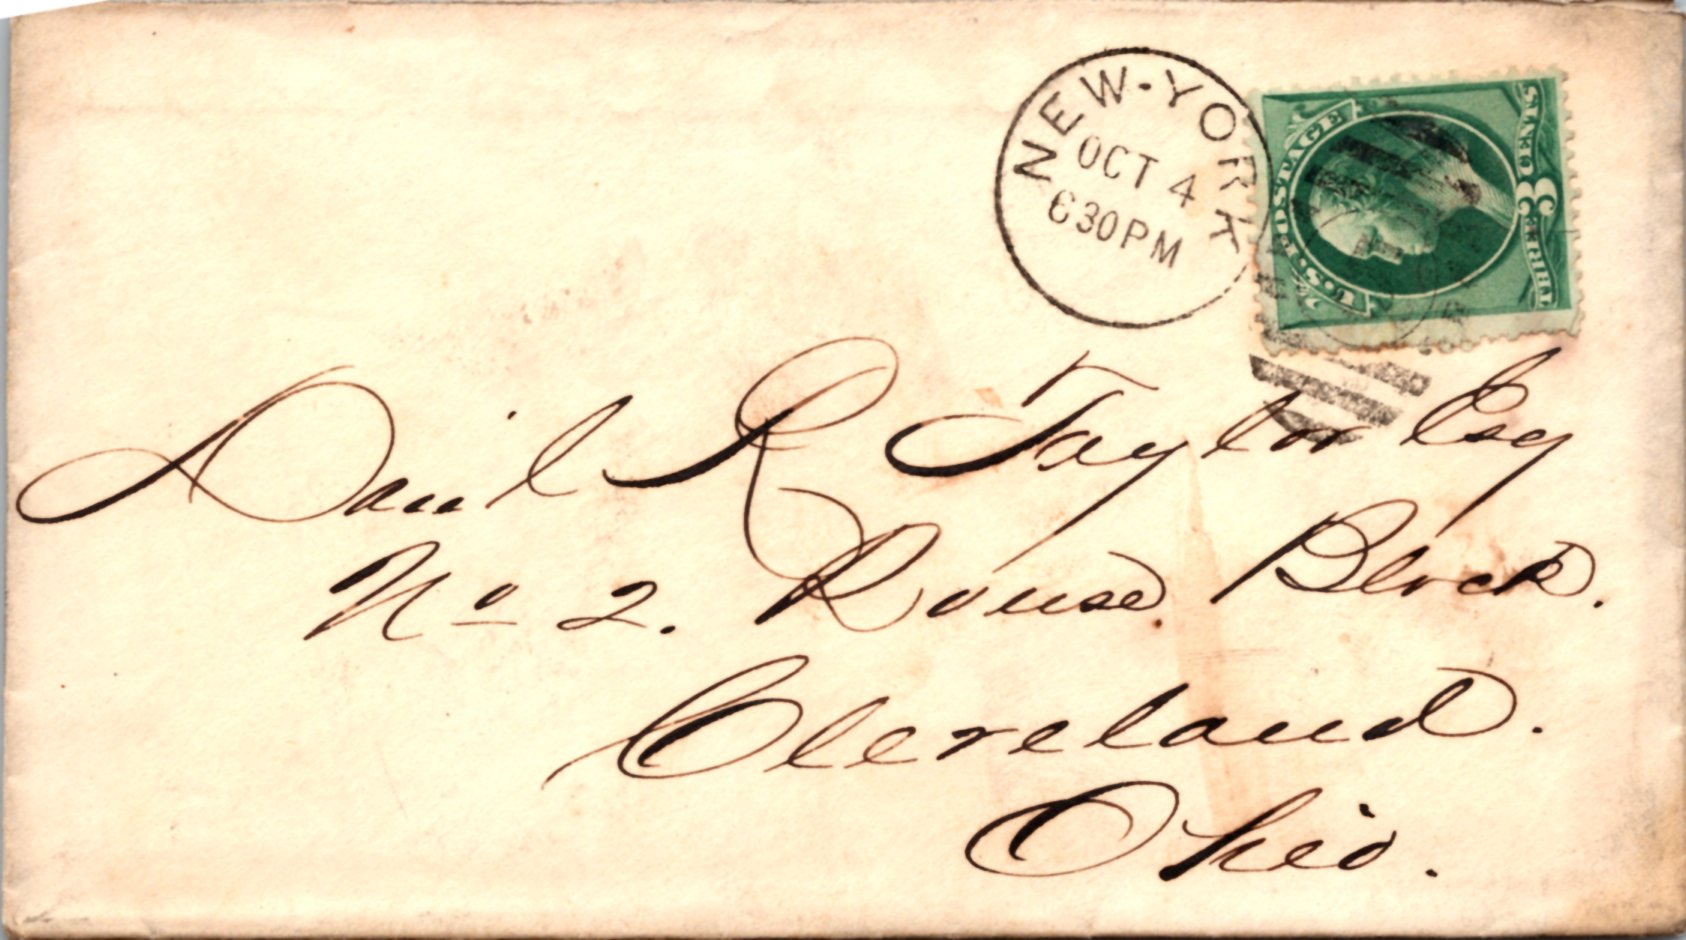 NEW-YORK
OCT 4
630PM
U.S. POSTAGE
3 THREE 3 CENTS
Dan'l R Taylor Esq
No 2. Rouse Block.
Cleveland.
Ohio.